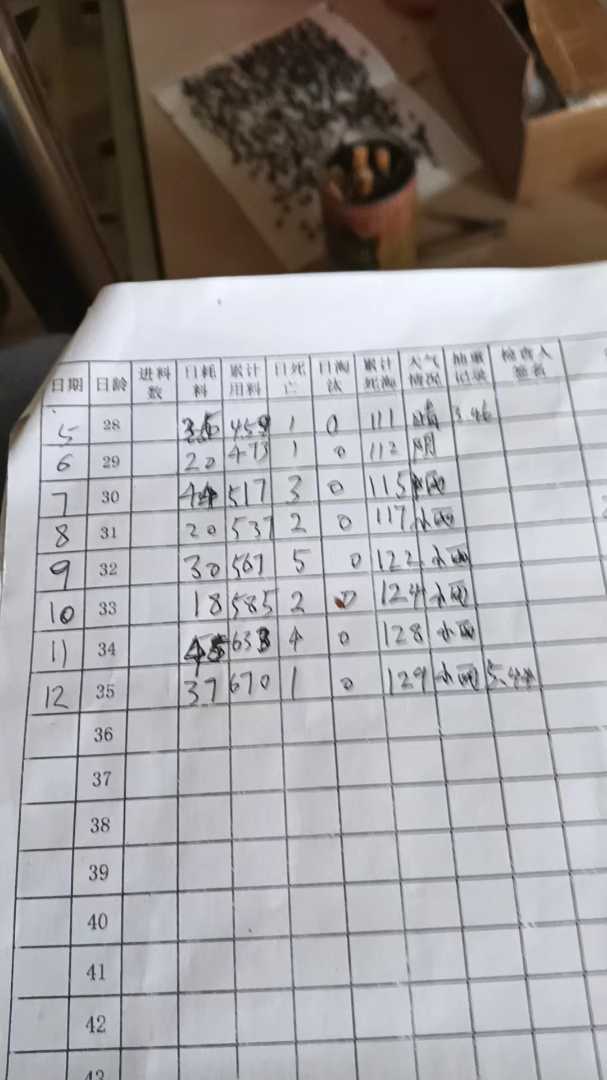 日期 日龄 进料数 日耗料 累计用料 日死亡 日淘汰 累计死淘 天气情况 抽重记录 检查人签名
5 28 459 1 0 111 晴 3.46
6 29 20 473 1 0 112 阴
7 30 44 517 3 0 115 小雨
8 31 20 537 2 0 117 小雨
9 32 30 567 5 0 122 小雨
10 33 18 585 2 0 124 小雨
11 34 45 633 4 0 128 小雨
12 35 37 670 1 0 129 小雨 5.44
36
37
38
39
40
41
42
43